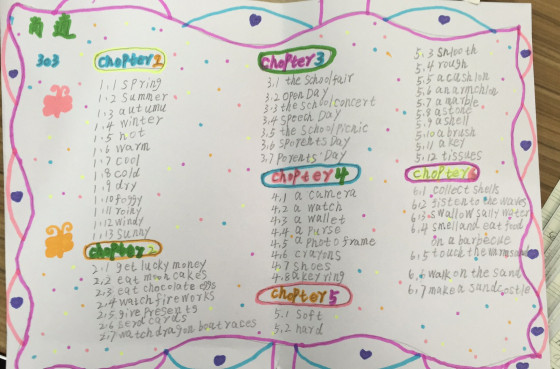 303
chapter1
1.1 spring
1.2 summer
1.3 autumu
1.4 winter
1.5 hot
1.6 warm
1.7 cool
1.8 cold
1.9 dry
1.10 foggy
1.11 rainy
1.12 windy
1.13 sunny
chapter2
2.1 get lucky money
2.2 eat moon cakes
2.3 eat chocolate eggs
2.4 watch fireworks
2.5 give presents
2.6 send cards
2.7 watch dragon boat races
chapter3
3.1 the school fair
3.2 open Day
3.3 the school concert
3.4 speech Day
3.5 the school picnic
3.6 sports Day
3.7 Parents' Day
chapter4
4.1 a camera
4.2 a watch
4.3 a wallet
4.4 a purse
4.5 a photo frame
4.6 crayons
4.7 shoes
4.8 a key ring
chapter5
5.1 soft
5.2 hard
5.3 smooth
5.4 rough
5.5 a cushion
5.6 an armchair
5.7 a marble
5.8 a stone
5.9 a shell
5.10 a brush
5.11 a key
5.12 tissues
chapter6
6.1 collect shells
6.2 listen to the waves
6.3 swallow salty water
6.4 smell and eat food
on a barbecue
6.5 touch the warm sand
6.6 walk on the sand
6.7 make a sandcastle